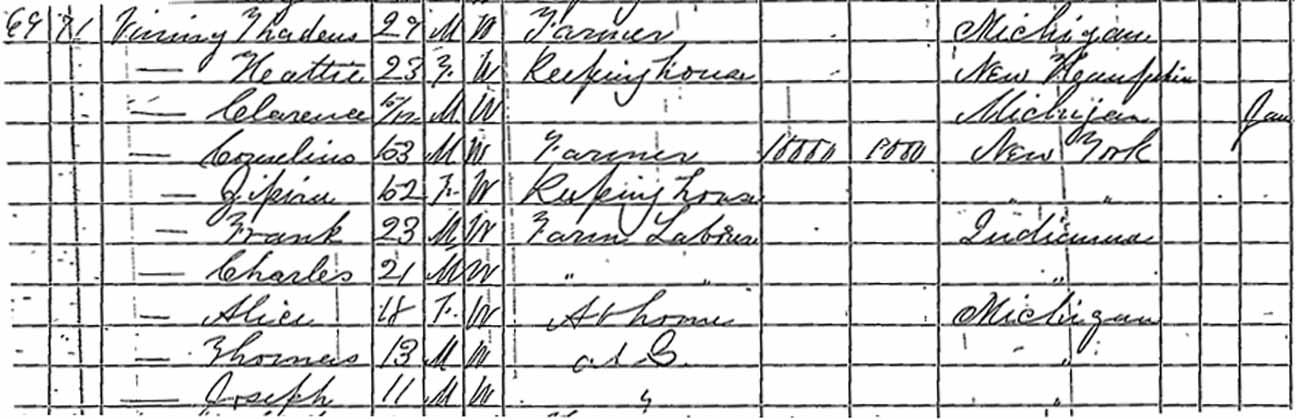 69 71 Vining Thadeus 29 M W Farmer Michigan
— Hattie 23 F. W Keeping house New Hampshire
— Clarence 5/12 M W Michigan Jan
— Cornelius 63 M W Farmer 10000 1000 New York
— Zipira 62 F. W Keeping house " "
— Frank 23 M W Farm Laborer Indianna
— Charles 21 M W " " "
— Alice 18 F. W At home Michigan
— Thomas 13 M W at S. "
— Joseph 11 M W " "